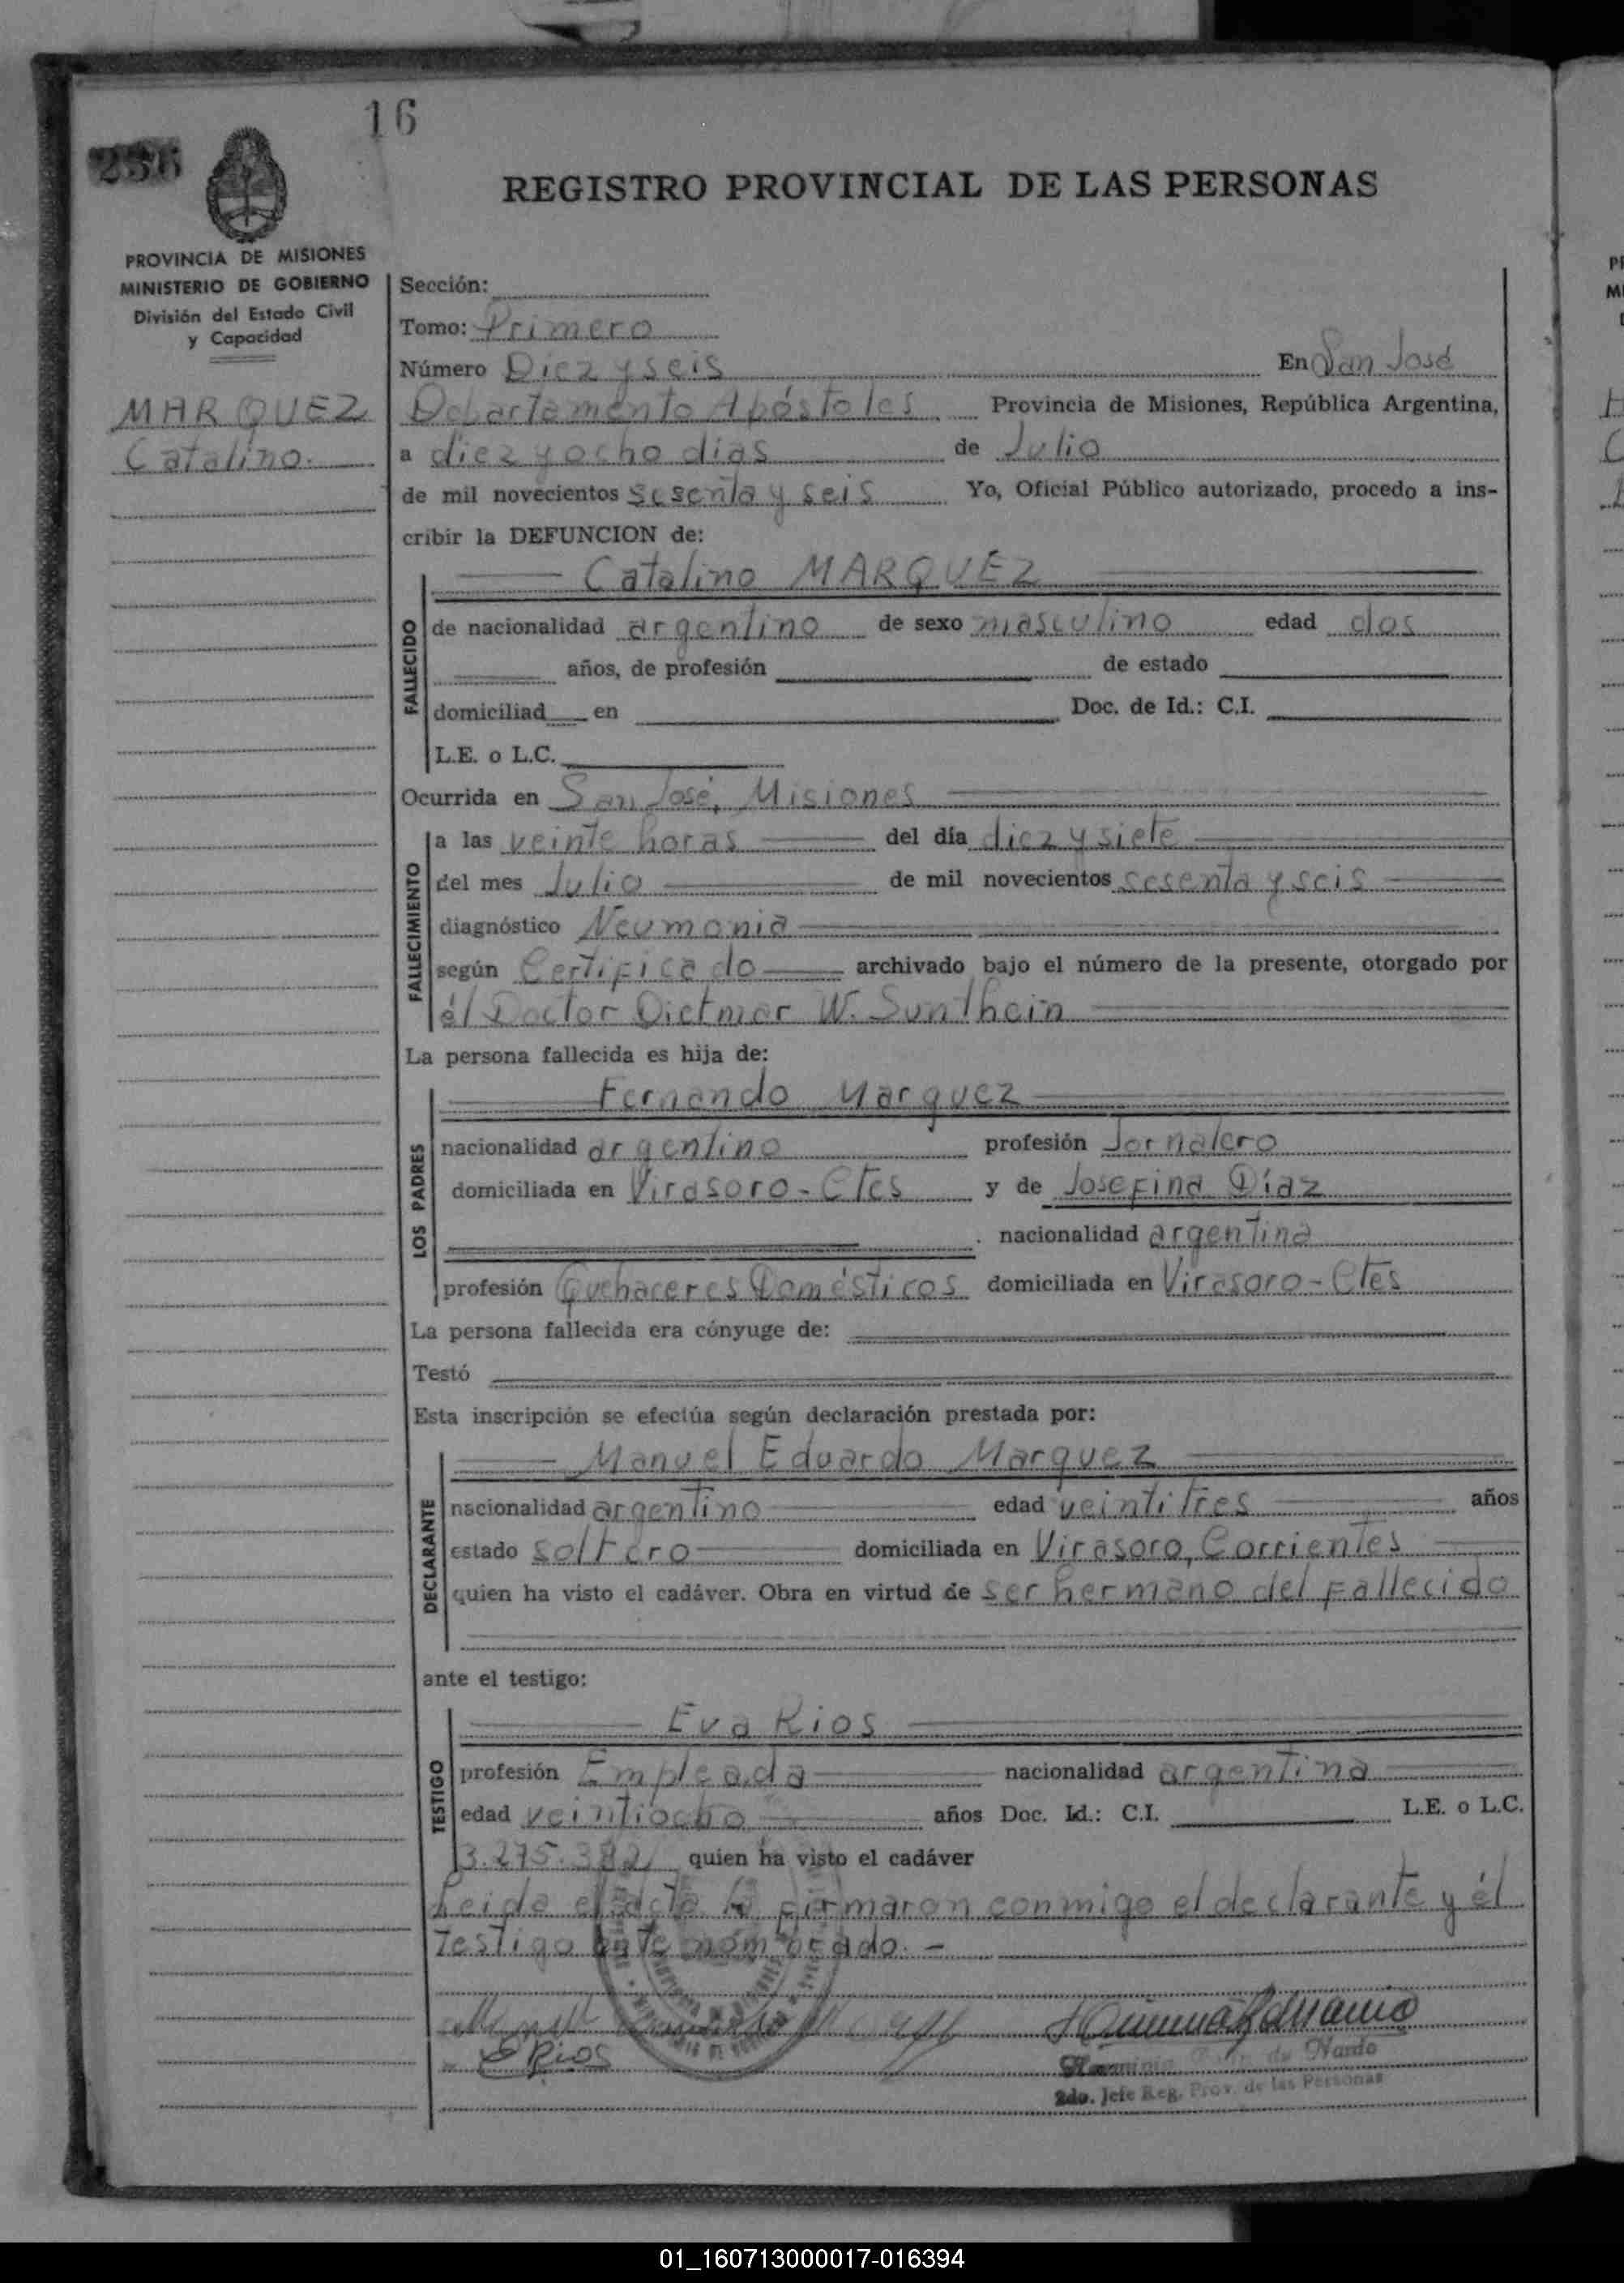 16
236
REGISTRO PROVINCIAL DE LAS PERSONAS
PROVINCIA DE MISIONES
MINISTERIO DE GOBIERNO
División del Estado Civil
y Capacidad
MARQUEZ
Catalino.
Sección:
Tomo: Primero
Número Diez y seis En San José
Departamento Apóstoles Provincia de Misiones, República Argentina,
a diez y ocho dias de Julio
de mil novecientos sesenta y seis Yo, Oficial Público autorizado, procedo a ins-
cribir la DEFUNCION de:
Catalino MARQUEZ
FALLECIDO
de nacionalidad argentino de sexo masculino edad dos
años, de profesión de estado
domiciliad en Doc. de Id.: C.I.
L.E. o L.C.
Ocurrida en San José, Misiones
FALLECIMIENTO
a las veinte horas del día diez y siete
del mes Julio de mil novecientos sesenta y seis
diagnóstico Neumonia
según Certificado archivado bajo el número de la presente, otorgado por
él Doctor Dietmar W. Sunthein
La persona fallecida es hija de:
Fernando Marquez
LOS PADRES
nacionalidad argentino profesión Jornalero
domiciliada en Virasoro - Ctes y de Josefina Díaz
. nacionalidad argentina
profesión Quehaceres Domésticos domiciliada en Virasoro - Ctes
La persona fallecida era cónyuge de:
Testó
Esta inscripción se efectúa según declaración prestada por:
Manuel Eduardo Marquez
DECLARANTE
nacionalidad argentino edad veintitres años
estado soltero domiciliada en Virasoro, Corrientes
quien ha visto el cadáver. Obra en virtud de ser hermano del fallecido
ante el testigo:
Eva Rios
TESTIGO
profesión Empleada nacionalidad argentina
edad veintiocho años Doc. Id.: C.I. L.E. o L.C.
3.275.382 quien ha visto el cadáver
Leida el acta la firmaron conmigo el declarante y él
Testigo ante nombrado. -
E Rios
de Nardo
2do. Jefe Reg. Prov. de las Personas
01_160713000017-016394